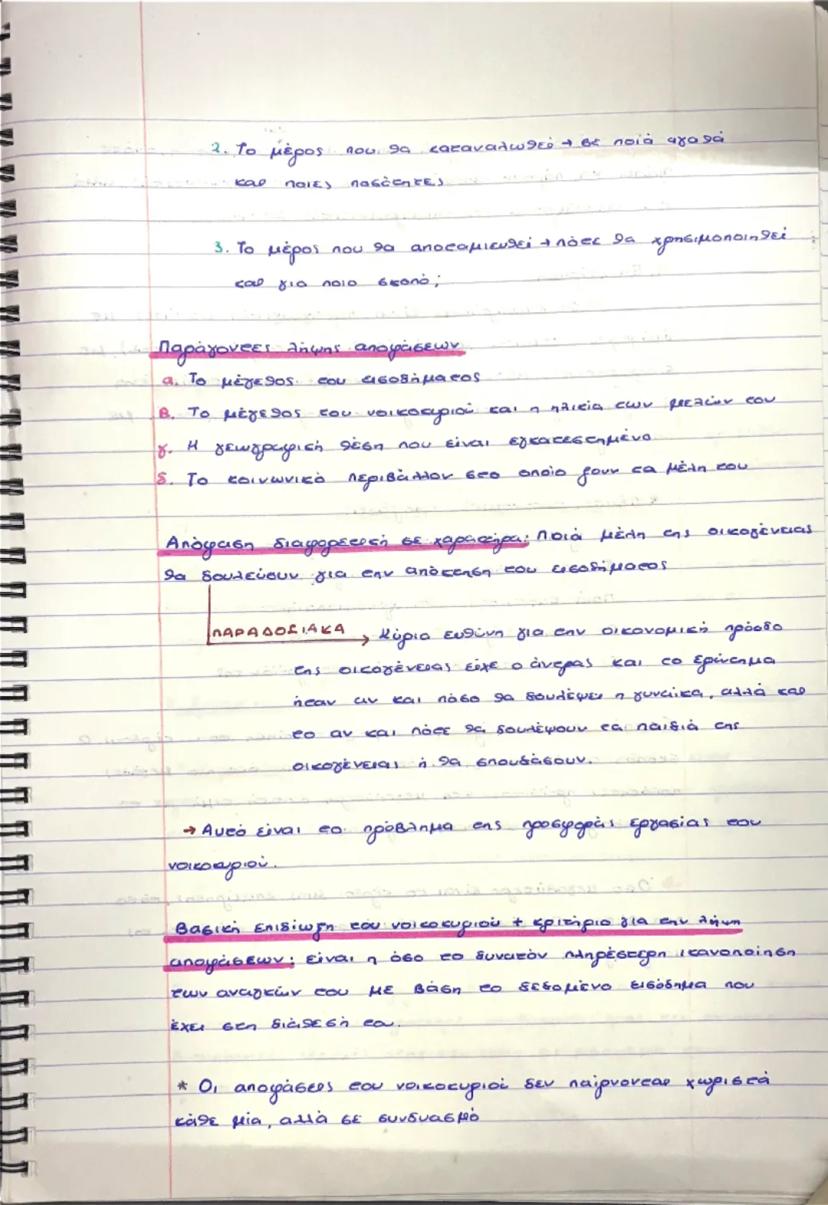 2. Το μέρος που θα καταναλωθεί → σε ποιά αγαθά
και ποιες ποσότητες
3. Το μέρος που θα αποταμιευθεί → πότε θα χρησιμοποιηθεί
και για ποιο σκοπό;
Παράγοντες λήψης αποφάσεων
α. Το μέγεθος του εισοδήματος
β. Το μέγεθος του νοικοκυριού και η ηλικία των μελών του
γ. Η γεωγραφική θέση που είναι εγκατεστημένο
δ. Το κοινωνικό περιβάλλον στο οποίο ζουν τα μέλη του
Απόφαση διαφορετική σε χαρακτήρα: Ποιά μέλη της οικογένειας
θα δουλεύουν για την απόκτηση του εισοδήματος
ΠΑΡΑΔΟΣΙΑΚΑ → Κύρια ευθύνη για την οικονομική πρόοδο
της οικογένειας είχε ο άντρας και το ερώτημα
ήταν αν και πόσο θα δουλέψει η γυναίκα, αλλά και
το αν και πότε θα δουλέψουν τα παιδιά της
οικογένειας ή θα σπουδάσουν.
→ Αυτό είναι το πρόβλημα της προσφοράς εργασίας του
νοικοκυριού.
Βασική επιδίωξη του νοικοκυριού + κριτήριο για την λήψη
αποφάσεων: είναι η όσο το δυνατόν πληρέστερη ικανοποίηση
των αναγκών του με βάση το δεδομένο εισόδημα που
έχει στη διάθεσή του.
* Οι αποφάσεις του νοικοκυριού δεν παίρνονται χωριστά
κάθε μία, αλλά σε συνδυασμό